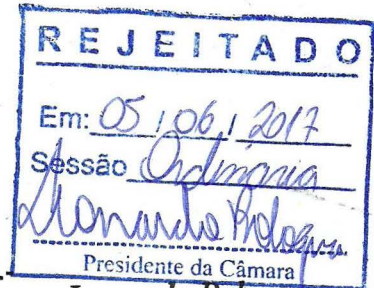 REJEITADO
Em: 05 / 06 / 2017
Sessão Ordinária
Leonardo
Presidente da Câmara